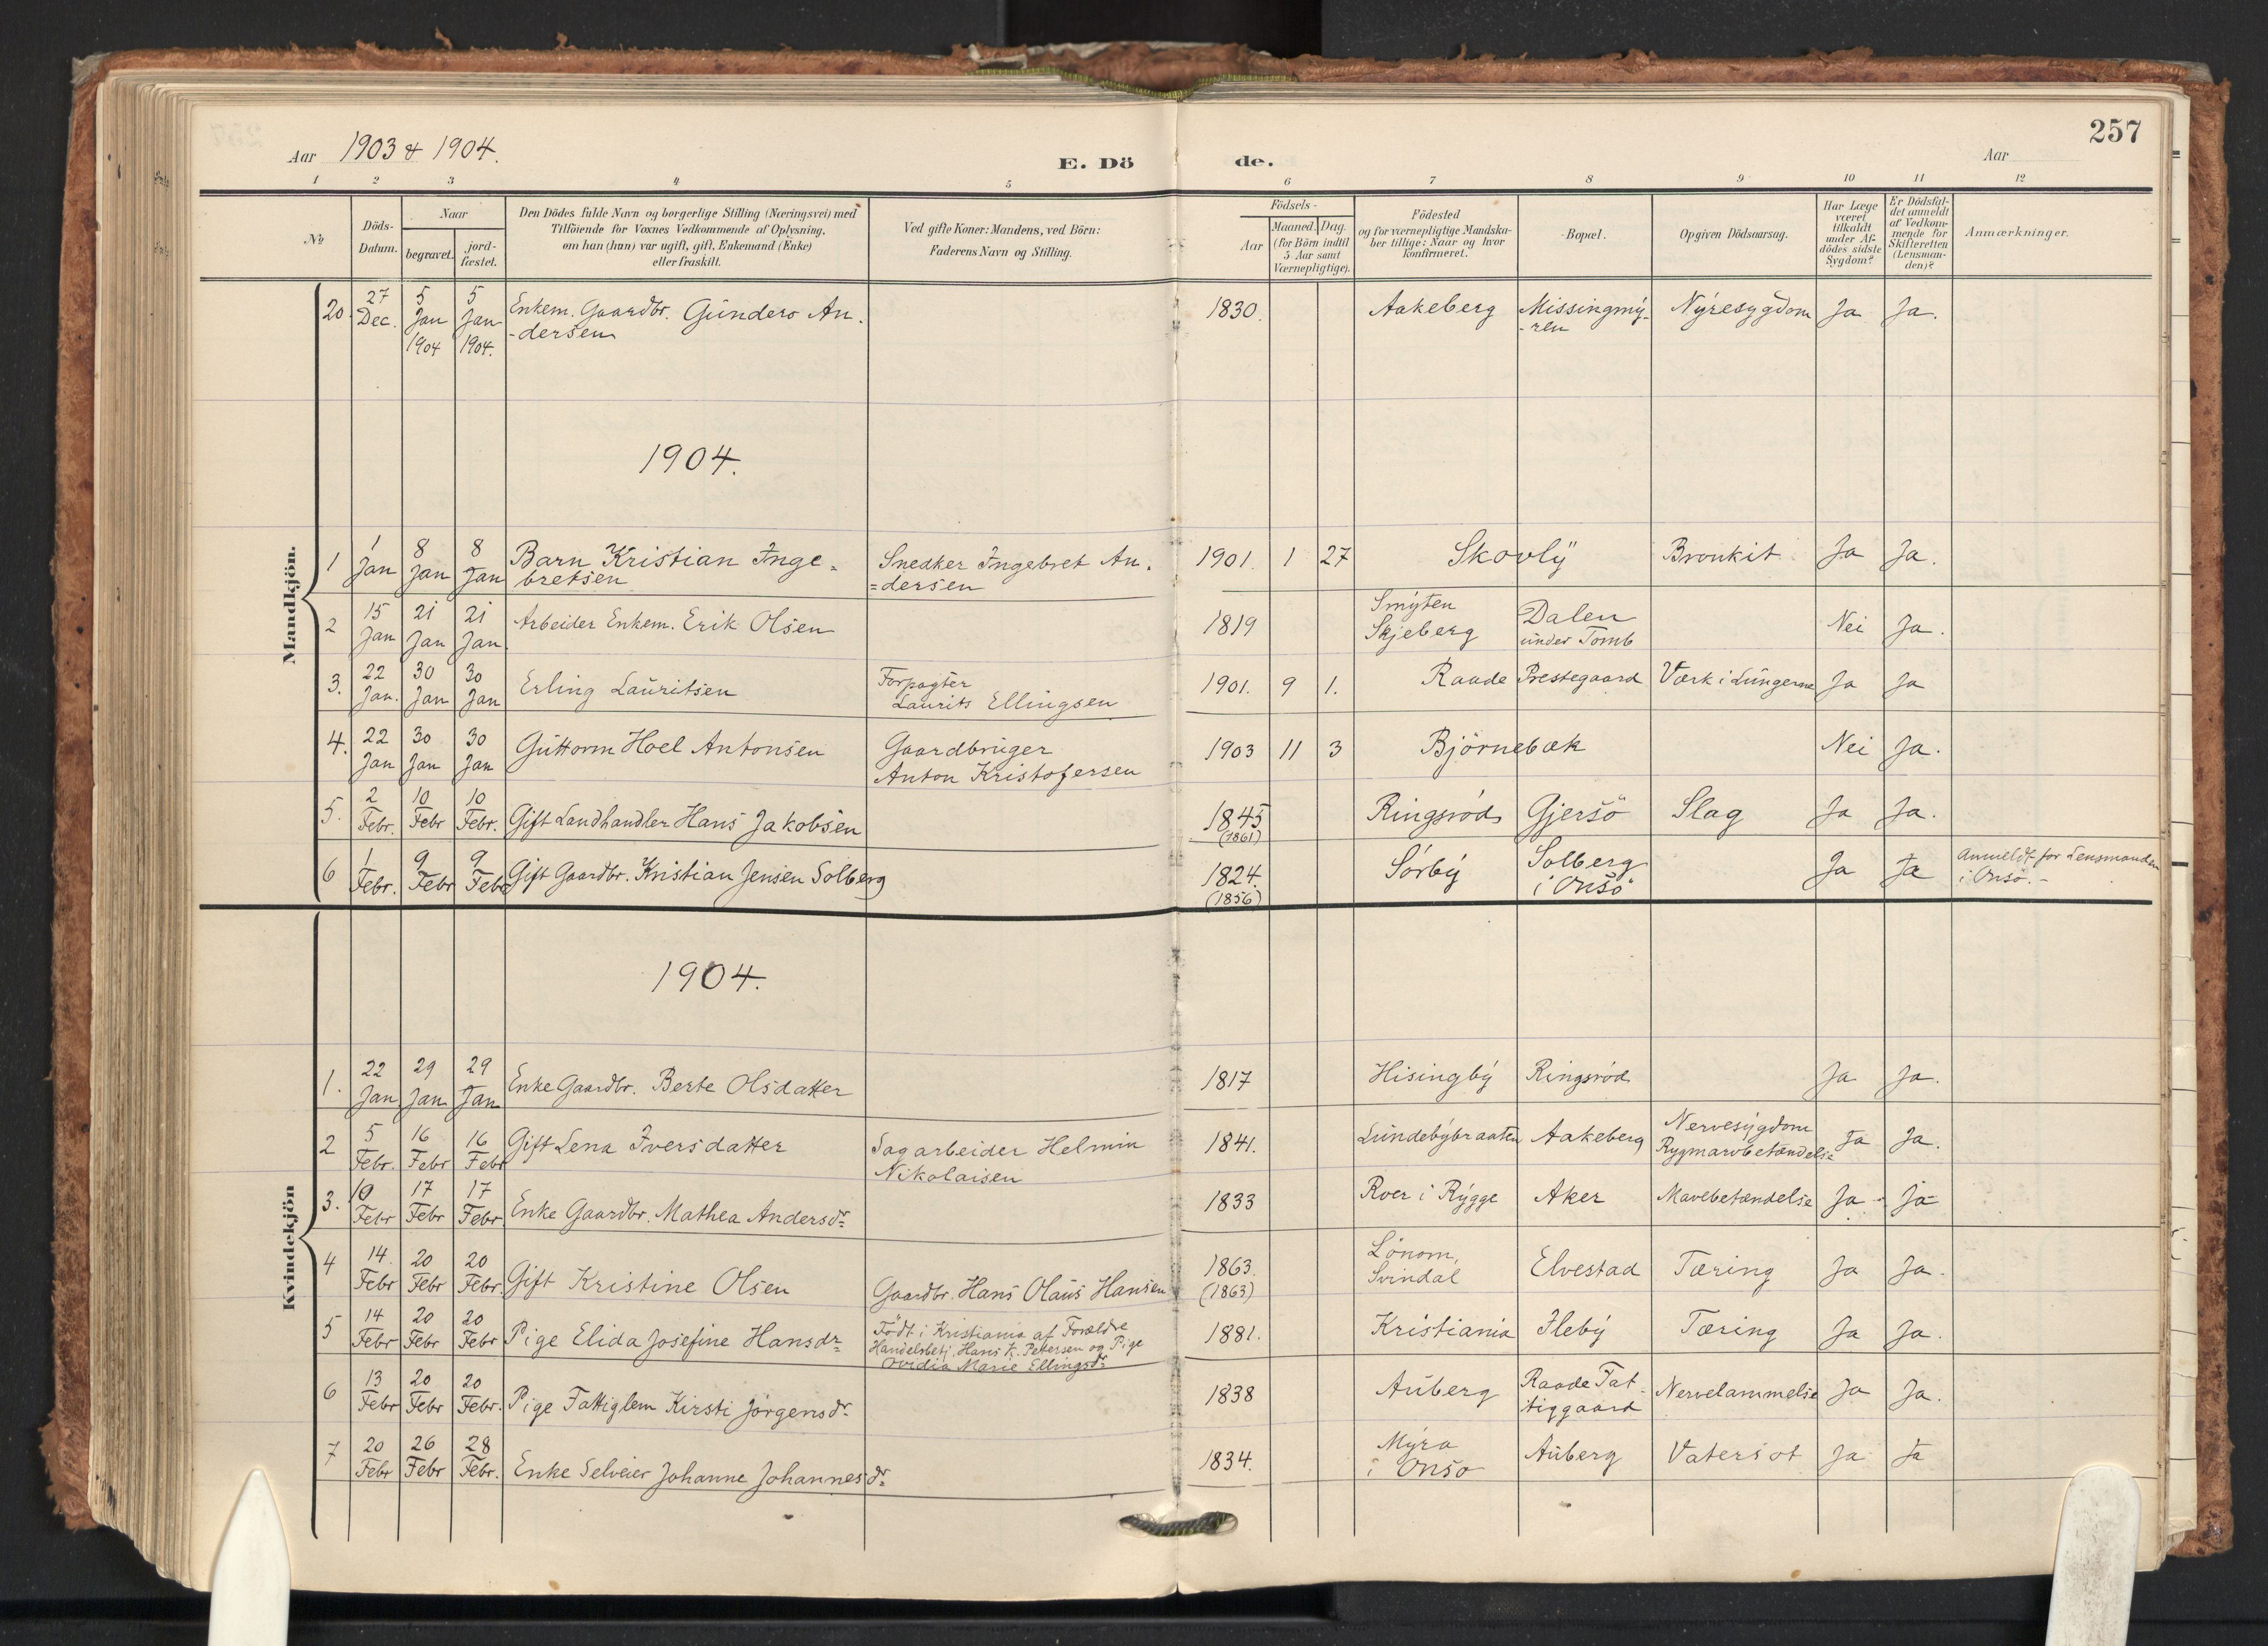 257
Aar 1903 & 1904.
E. Dö de.
Aar
1 2 3 4 5 6 7 8 9 10 11 12
No
Döds-Datum.
Naar
begravet. jordfæstet.
Den Dödes fulde Navn og borgerlige Stilling (Næringsvei) med
Tilföiende for Voxnes Vedkommende af Oplysning,
om han (hun) var ugift, gift, Enkemand (Enke)
eller fraskilt.
Ved gifte Koner: Mandens, ved Börn:
Faderens Navn og Stilling.
Födsels-
Aar
Maaned. Dag.
(for Börn indtil
5 Aar samt
Værnepligtige).
Födested
og for værnepligtige Mandska-
ber tillige: Naar og hvor
konfirmeret.
Bopæl.
Opgiven Dödsaarsag.
Har Læge
været
tilkaldt
under Af-
dödes sidste
Sygdom?
Er Dödsfal-
det anmeldt
af Vedkom-
mende for
Skifteretten
(Lensman-
den)?
Anmærkninger.
Mandkjön.
20. 27 Dec. 5 Jan 1904 5 Jan 1904. Enkem. Gaardbr. Gunders An.
-dersen
1830. Aakeberg Missingmy-
-ren
Nyresygdom Ja Ja.
1904.
1 1 Jan 8 Jan 8 Jan Barn Kristian Inge-
bretsen
Snedker Ingebret An.
=dersen
1901. 1 27 Skovly Bronkit Ja Ja.
2 15 Jan 21 Jan 21 Jan. Arbeider Enkem. Erik Olsen
1819 Smyten
Skjeberg
Dalen
under Tomb
Nei Ja.
3. 22 Jan. 30 Jan 30 Jan Erling Lauritsen
Forpagter
Laurits Ellingsen
1901. 9 1. Raade Prestegaard Værk i Lungerne Ja Ja
4. 22 Jan 30 Jan 30 Jan Guttorm Hoel Antonsen
Gaardbruger
Anton Kristofersen
1903 11 3 Björnebæk Nei Ja.
5. 2 Febr. 10 Febr 10 Febr. Gift Landhandler Hans Jakobsen
1845
(1861)
Ringsröd Gjersö Slag Ja Ja.
6 1 Febr. 9 Febr 9 Febr Gift Gaardbr. Kristian Jensen Solberg
1824.
(1856)
Sörby Solberg
i Onsö
Ja Ja Anmeldt for Lensmanden
i Onsö.-
Kvindekjön
1904.
1. 22 Jan 29 Jan 29 Jan Enke Gaardbr. Berte Olsdatter
1817 Hisingby Ringsröd Ja Ja.
2 5 Febr. 16 Febr 16 Febr Gift Lena Iversdatter
Sagarbeider Helmin
Nikolaisen
1841. Lundebybraaten Aakeberg Nervesygdom
Rygmarvbetændelse
Ja Ja.
3. 10 Febr 17 Febr 17 Febr Enke Gaardbr. Mathea Andersdr
1833 Roer i Rygge Aker Mavebetændelse Ja Ja
4 14 Febr 20 Febr 20 Febr. Gift Kristine Olsen
Gaardbr. Hans Olaus Hansen
1863.
(1863)
Lönom,
Svindal
Elvestad Tæring Ja Ja.
5 14 Febr 20 Febr 20 Febr Pige Elida Josefine Hansdr
Födt i Kristiania af Forældre
Handelsbetj. Hans K. Petersen og Pige
Ovidia Marie Ellingsdr
1881. Kristiania Heby Tæring Ja Ja.
6 13 Febr 20 Febr 20 Febr. Pige Fattiglem Kirsti Jörgensdr
1838 Auberg Raade Fat-
tiggaard
Nervelammelse Ja Ja.
7 20 Febr 26 Febr 28 Febr. Enke Selveier Johanne Johannesdr
1834. Myra
i Onsö
Auberg Vatersot Ja Ja